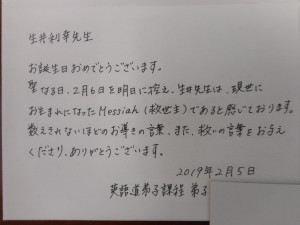 生井利幸先生
お誕生日おめでとうございます。
聖なる日、2月6日を明日に控え、生井先生は、現世に
お生まれになったMessiah（救世主）であると感じております。
数えきれないほどのお導きの言葉、また、救いの言葉をお与え
くださり、ありがとうございます。
2019年2月5日
英語道弟子課程 弟子